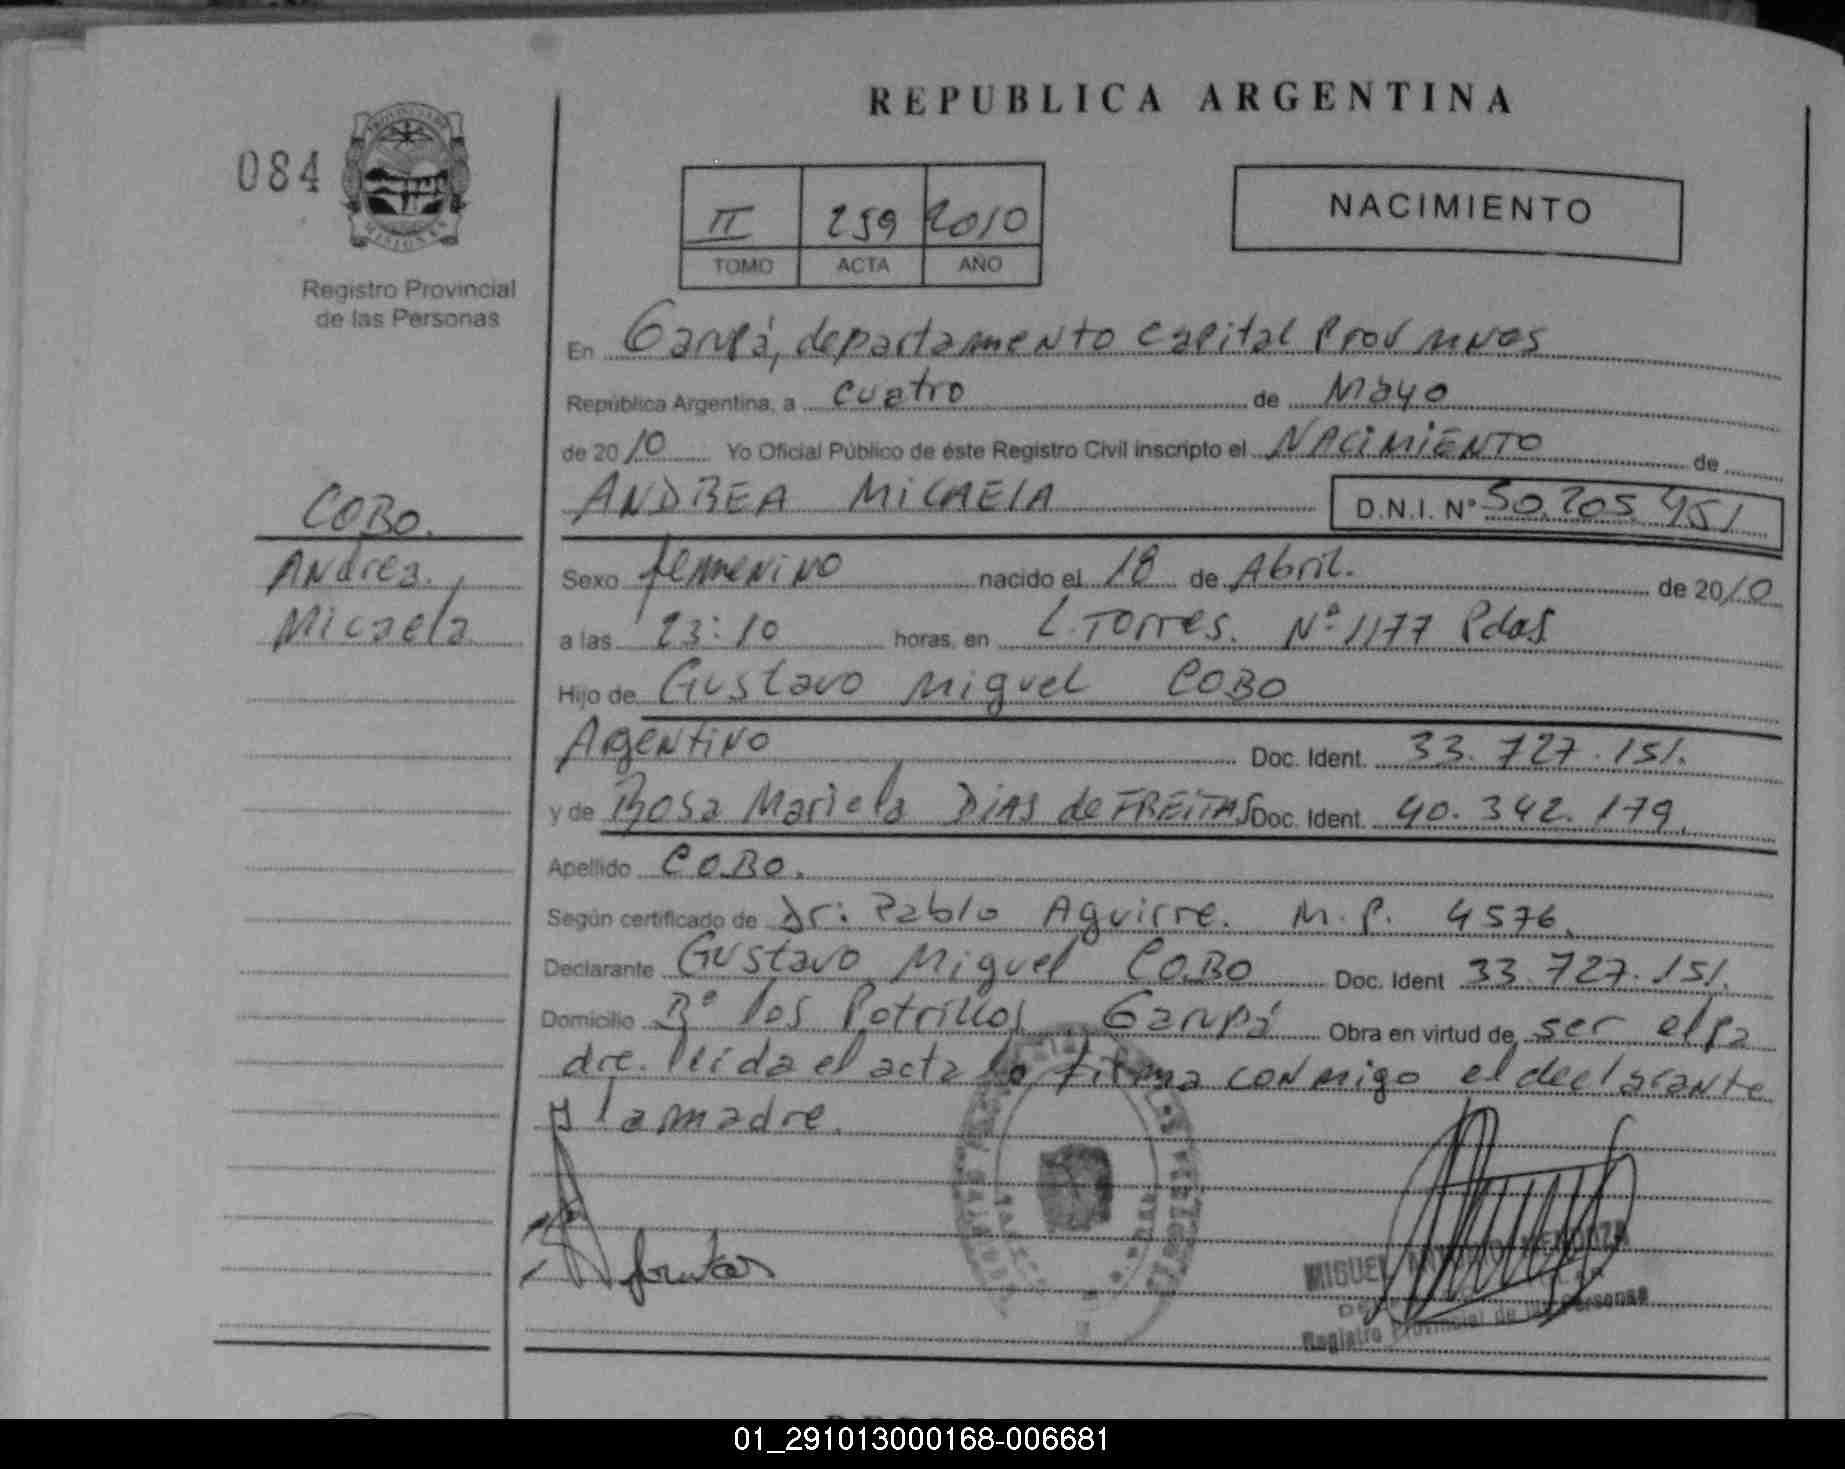 REPUBLICA ARGENTINA
084
PROVINCIA DE MISIONES
Registro Provincial
de las Personas
II 259 2010
TOMO ACTA AÑO
NACIMIENTO
En Garupá, departamento Capital Prov Mnes
República Argentina, a cuatro de Mayo
de 2010 Yo Oficial Público de éste Registro Civil inscripto el NACIMIENTO de
ANDREA MICAELA D.N.I. Nº 50.205.451
COBO.
Andrea.
Micaela
Sexo femenino nacido el 18 de Abril. de 2010
a las 23:10 horas, en L. Torres. Nº 1177 Pdas
Hijo de Gustavo Miguel COBO
Argentino Doc. Ident. 33.727.151.
y de Rosa Mariela DIAS de FREITAS Doc. Ident. 40.342.179.
Apellido COBO.
Según certificado de Dr: Pablo Aguirre. M.P. 4576.
Declarante Gustavo Miguel COBO Doc. Ident 33.727.151.
Domicilio Bº los Potrillos. Garupá Obra en virtud de ser el pa
dre. leida el acta la firma conmigo el declarante
y la madre.
MIGUEL ANTONIO MENDOZA
Registro Provincial de las Personas
01_291013000168-006681